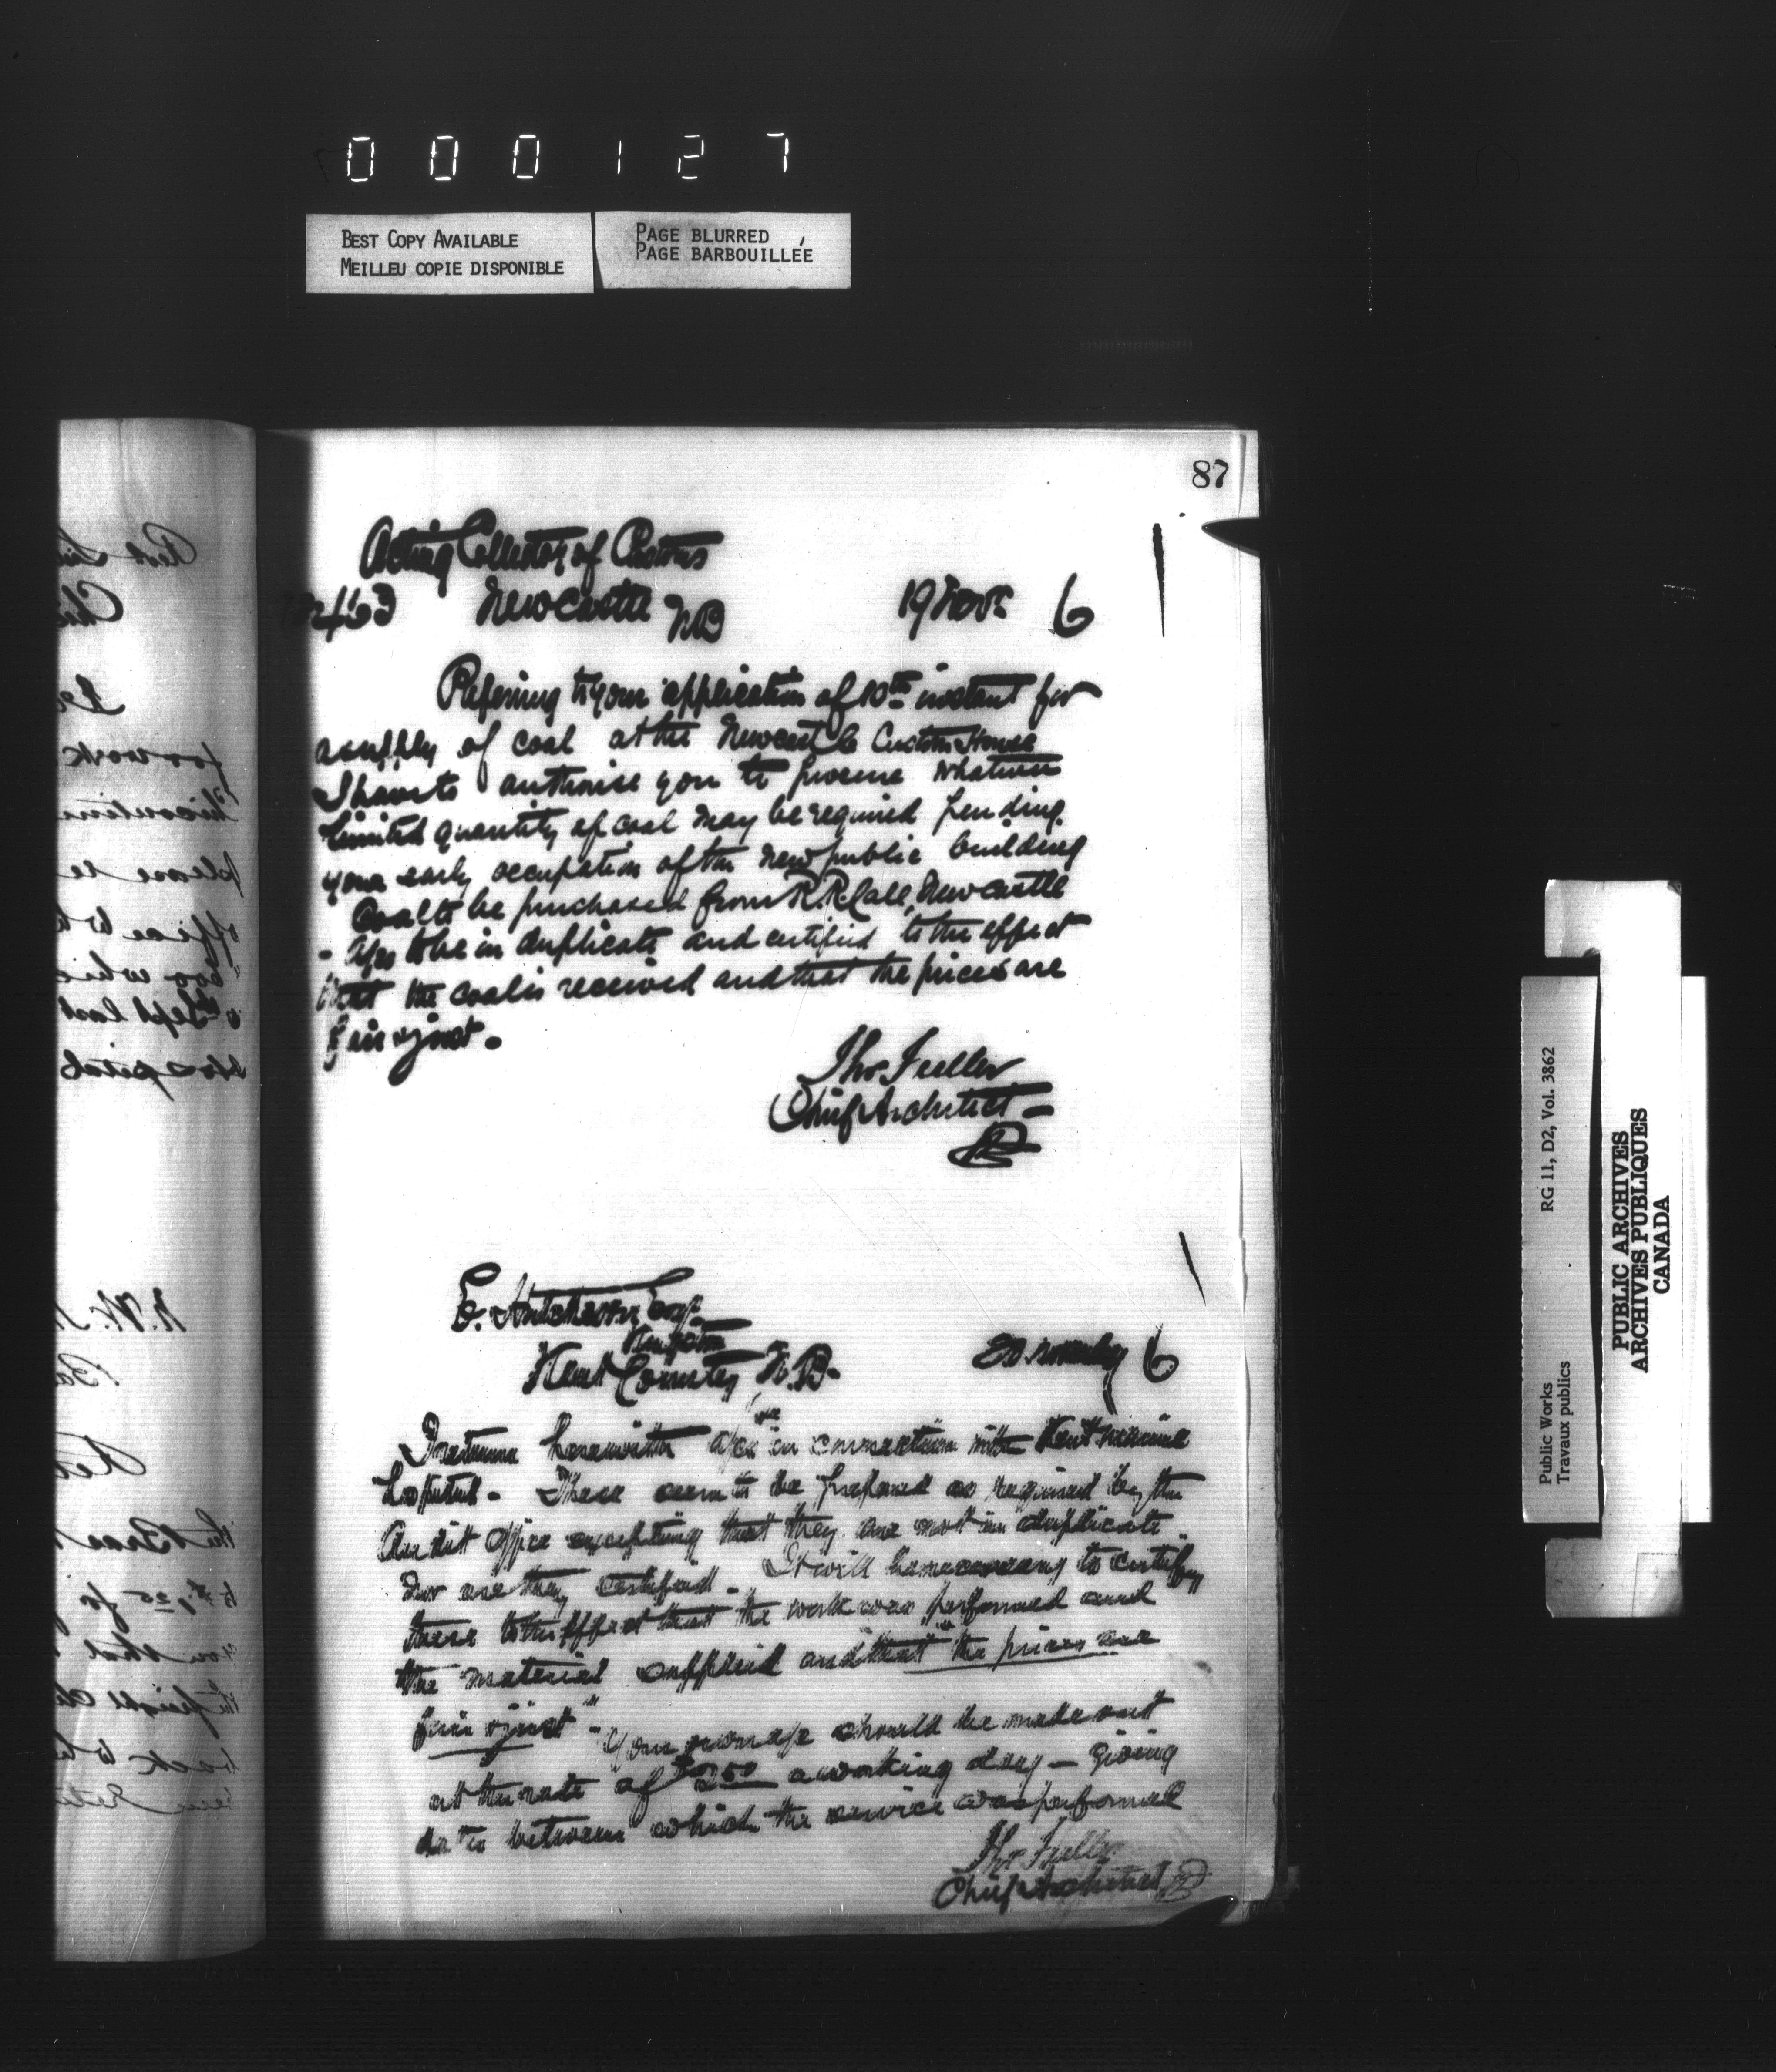 000127
BEST COPY AVAILABLE
MEILLEU COPIE DISPONIBLE
PAGE BLURRED
PAGE BARBOUILLÉE
87
Acting Collector of Customs
Newcastle NB 19 Nov 6
Refering to your application of 10th instant for
a supply of coal at the Newcastle Custom House
I have to authorise you to procure whatever
limited quantity of coal may be required pending
your early occupation of the new public building
Coal to be purchased from R.R. Call, Newcastle
- a/cs to be in duplicate and certified to the effect
that the coal is received and that the prices are
fair & just.
Thos. Fuller
Chief Architect
E. Hutchison Esq.
Kent County N.B. 20 6
I return herewith a/cs in connection with Kent marine
Hospital. These seem to be prepared as required by the
Audit Office excepting that they are not in duplicate
nor are they certified. It will be necessary to certify
these to the effect that the work was performed and
the material supplied and that "the prices are
fair & just" - Your own a/c should be made out
at the rate of a working day - giving
dates between which the service was performed
Thos. Fuller
Chief Architect
Public Works RG 11, D2, Vol. 3862
Travaux publics
PUBLIC ARCHIVES
ARCHIVES PUBLIQUES
CANADA